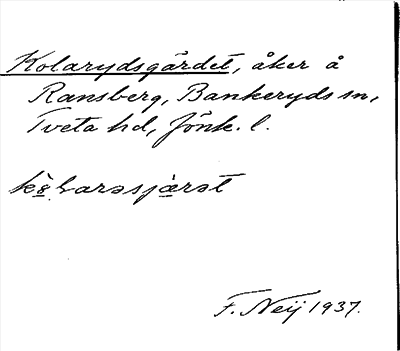 Kolarydsgärdet, åker å
Ransberg, Bankeryds sn,
Tveta hd, Jönk. l.
F. Neij 1937.